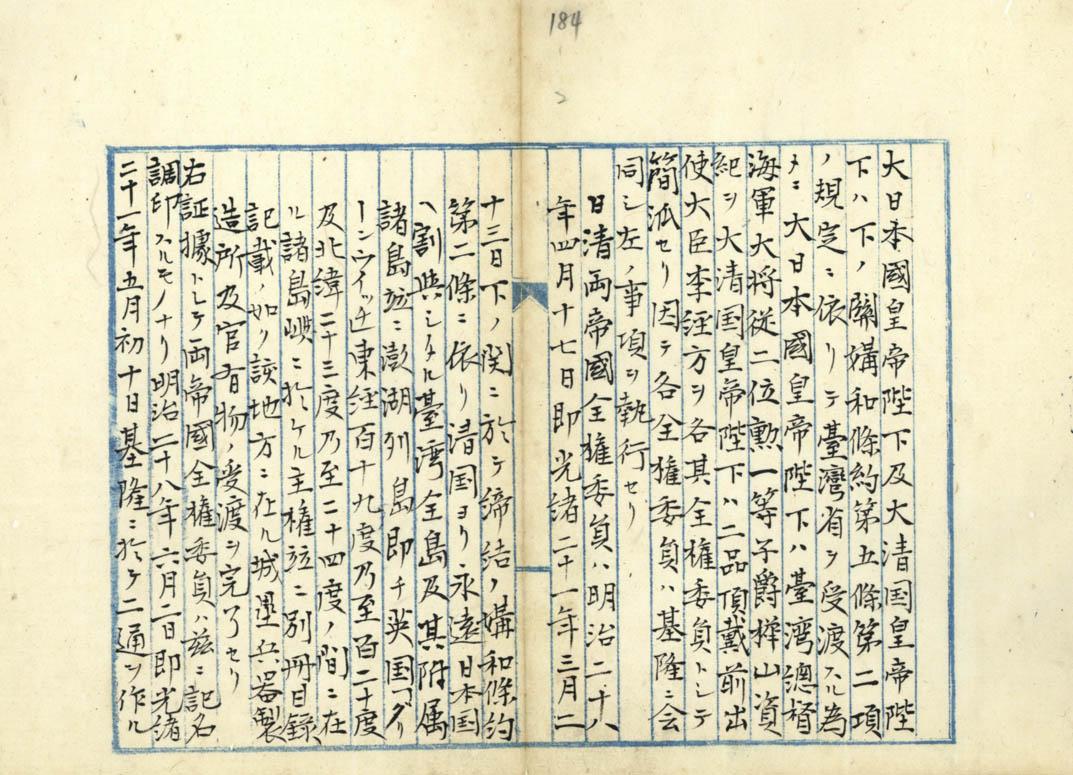 184
大日本國皇帝陛下及大清国皇帝陛
下ハ下ノ關媾和條約第五條第二項
ノ規定ニ依リテ臺灣省ヲ受渡スル為
メニ大日本國皇帝陛下ハ臺湾總督
海軍大将従二位勲一等子爵樺山資
紀ヲ大清国皇帝陛下ハ二品頂戴前出
使大臣李経方ヲ各其全権委員トシテ
簡派セリ因テ各全権委員ハ基隆ニ会
同シ左ノ事項ヲ執行セリ
日清両帝國全権委員ハ明治二十八
年四月十七日即光緒二十一年三月二
十三日下ノ関ニ於テ締結ノ媾和條約
第二條ニ依リ清国ヨリ永遠日本国
ヘ割與シタル臺湾全島及其附属
諸島並ニ澎湖列島即チ英国「グリ
ーンウイッチ」東経百十九度乃至百二十度
及北緯二十三度乃至二十四度ノ間ニ在
ル諸島嶼ニ於ケル主権竝ニ別冊目録
記載ノ如ク該地方ニ在ル城壘兵器製
造所及官有物ノ受渡ヲ完了セリ
右証據トシテ両帝國全権委員ハ茲ニ記名
調印スルモノナリ明治二十八年六月二日即光緒
二十一年五月初十日基隆ニ於テ二通ヲ作ル